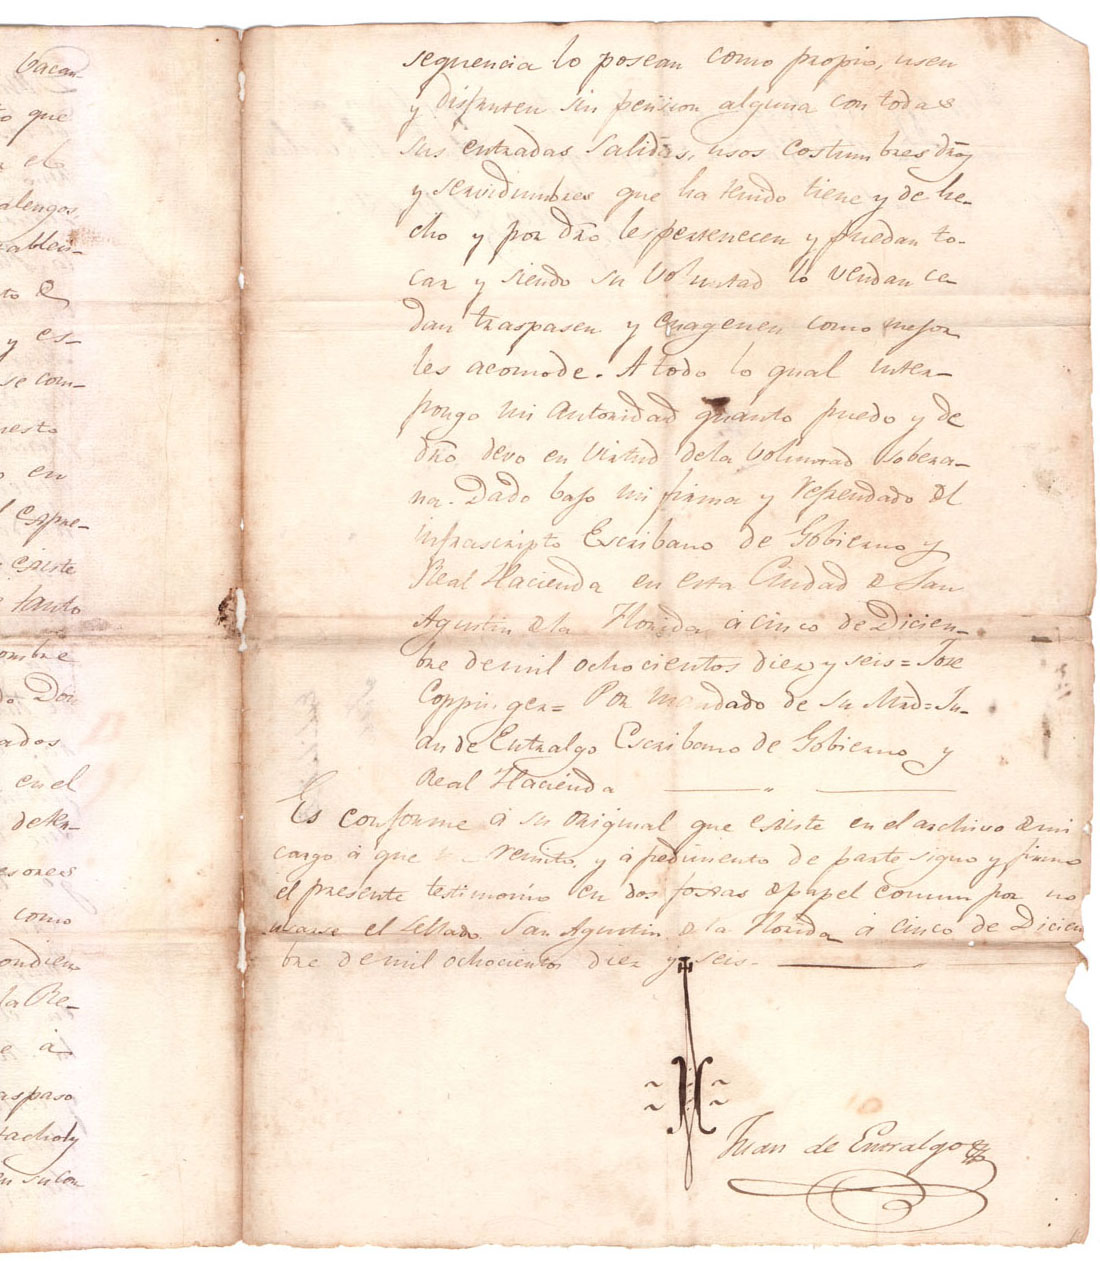 bacan-
to que
el
alengos
tablesi-
to de
y es-
se com-
uesto
o en
l espre-
existe
tanto
ombre
do Don
ados
en el
de Rr-
esores
como
ondien
la Re-
e à
aspaso
tacholy
en su con
sequencia lo posean como propio, usen
y disfruten sin pension alguna con todas
sus entradas salidas, usos costumbres dr̃os
y servidumbres que ha tenido tiene y de he-
cho y por dr̃o les pertenecen y puedan to-
car y siendo su voluntad lo vendan ce-
dan traspasen y enagenen como mejor
les acomode. A todo lo qual inter-
pongo mi autoridad quanto puedo y de
dr̃o devo en virtud de la voluntad sobera-
na. Dado bajo mi firma y refrendado del
infrascripto Escribano de Gobierno y
Real Hacienda en esta Ciudad de San
Agustin de la Florida à cinco de Diciem-
bre de mil ochocientos diez y seis = Jose
Coppinger = Por mandado de su Mrd = Ju-
an de Entralgo Escribano de Gobierno y
Real Hacienda
Es conforme à su original que existe en el archivo de mi
cargo à que me remito, y à pedimento de parte signo y firmo
el presente testimonio en dos foxas de papel comun por no
usarse el sellado San Agustin de la Florida à cinco de Diciem
bre de mil ochocientos diez y seis-
Juan de Entralgo